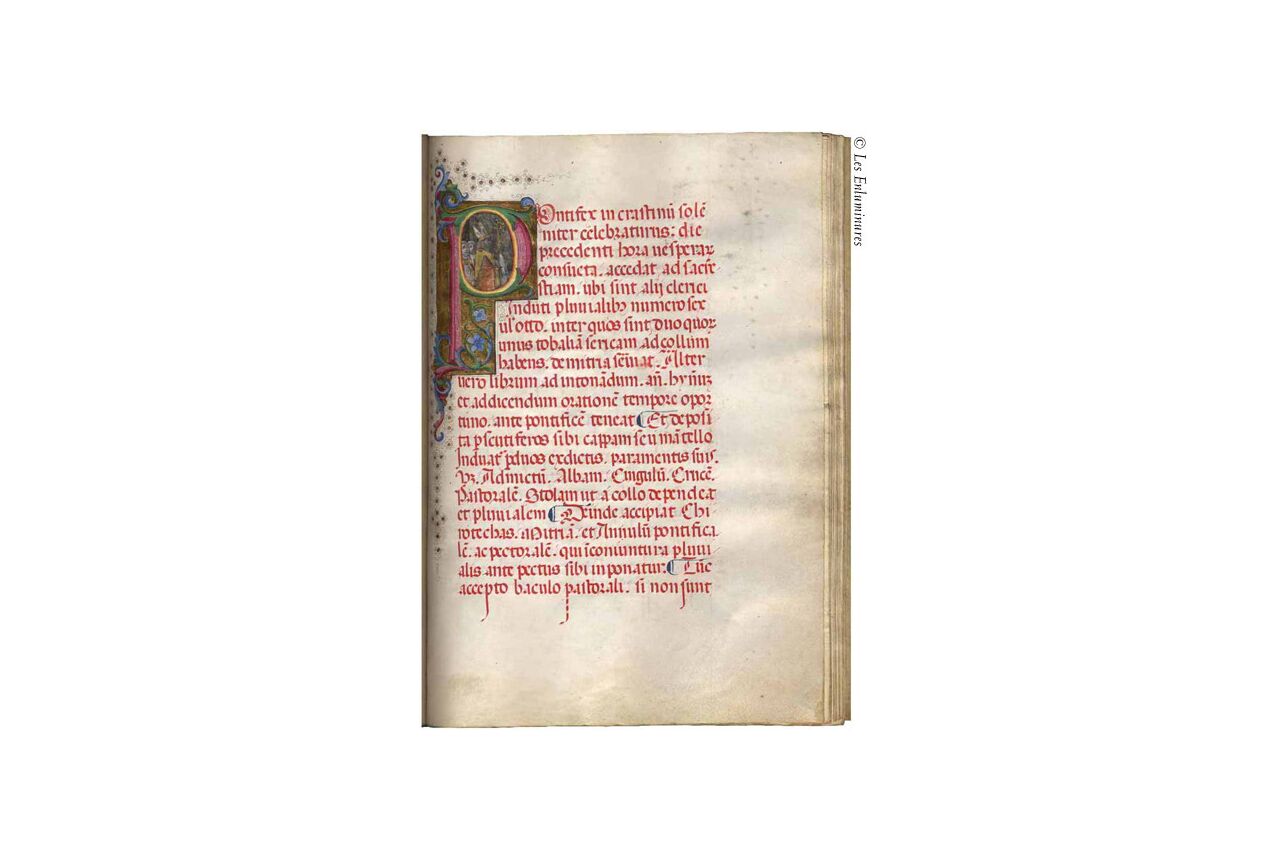 Pontifex in crastinū solē
niter celebraturus: die
precedenti hora vesperaꝝ
consueta. accedat ad sacri
stiam. ubi sint alij clerici
Induti pluvialibꝫ numero sex
ul' otto. inter quos sint duo quoꝝ
unus tobaliā sericam ad collum
habens. de mitria serviat. Alter
vero librum ad intonādum. añ. hymꝝ
et ad dicendum orationē tempore opor
tuno. ante pontificē teneat Et deposi
ta p scutiferos sibi cappam seu mātello
Induat' p duos ex dictis. paramentis suis.
Vꝫ. Admictū. Albam. Cingulū. Crucē.
Pastoralē. Stolam ut a collo dependeat
et pluvialem Deinde accipiat Chi
rotechas. Mitriā. et Annulū pontifica
lē. ac pectoralē. qui ī coniuntura pluvi
alis ante pectus sibi inponatur. Tūc
accepto baculo pastorali. si non sunt
© Les Enluminures